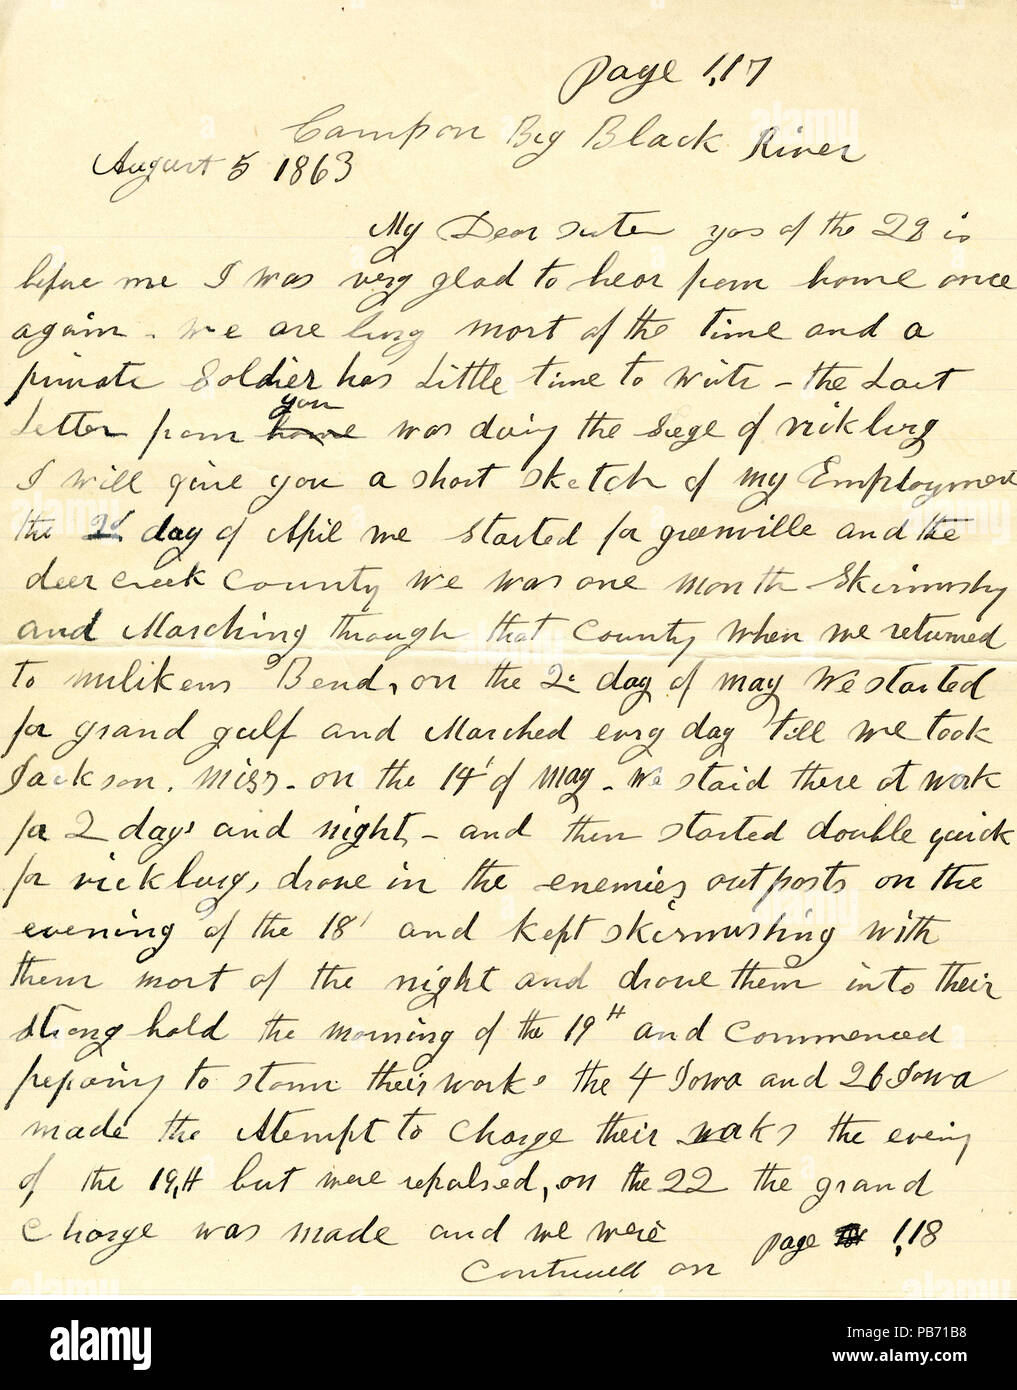 page 1,17
Camp on Big Black River
August 5 1863
My Dear sister yos of the 28 is
before me I was very glad to hear from home once
again - we are busy most of the time and a
private Soldier has Little time to write - the Last
you
Letter from home was duing the Siege of vicksburg
I will give you a short sketch of my Employment
the 2d day of April we started for greenville and the
deer creek County we was one month Skirmishg
and Marching through that County when we returned
to milikens Bend, on the 2d day of may We started
for grand gulf and Marched evry day till we took
Jackson. Miss - on the 14' of May - we staid there at work
for 2 days and night, - and then started double quick
for vicksburg, drove in the enemies outposts on the
evening of the 18' and kept skirmushing with
them most of the night and drove them into their
strong hold the morning of the 19th and commenced
prepairing to storm their works the 4 Iowa and 26 Iowa
made the Atempt to Charge their works the evenig
of the 19,th but were repulsed, on the 22 the grand
Charge was made and we were
page 1,18
Continued on
alamy
Image ID: PB71B8
www.alamy.com